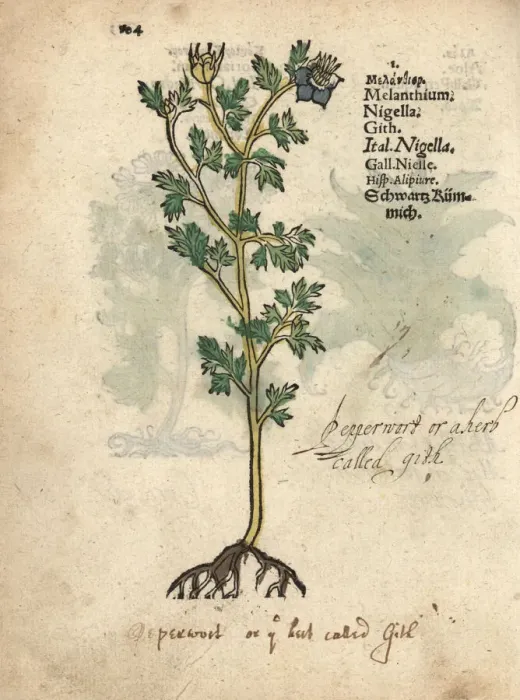 1.
Μελάνθιον.
Melanthium.
Nigella.
Gith.
Ital. Nigella.
Gall. Nielle.
Hisp. Alipiure.
Schwartz Küm-
mich.
pepperwort or a herb
called gith
peperwort or yͤ called Gith